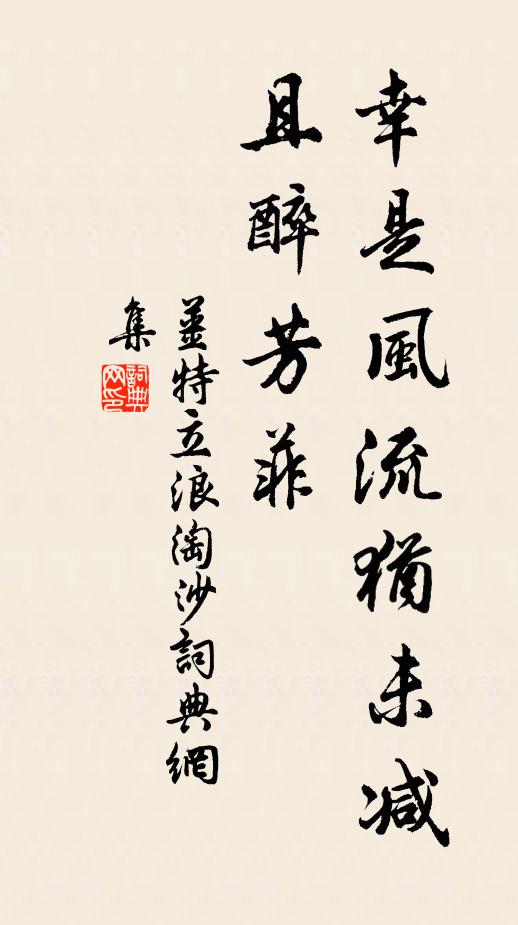 幸是風流猶未减
且醉芳菲
姜特立浪淘沙詞典網
集
詞典網印